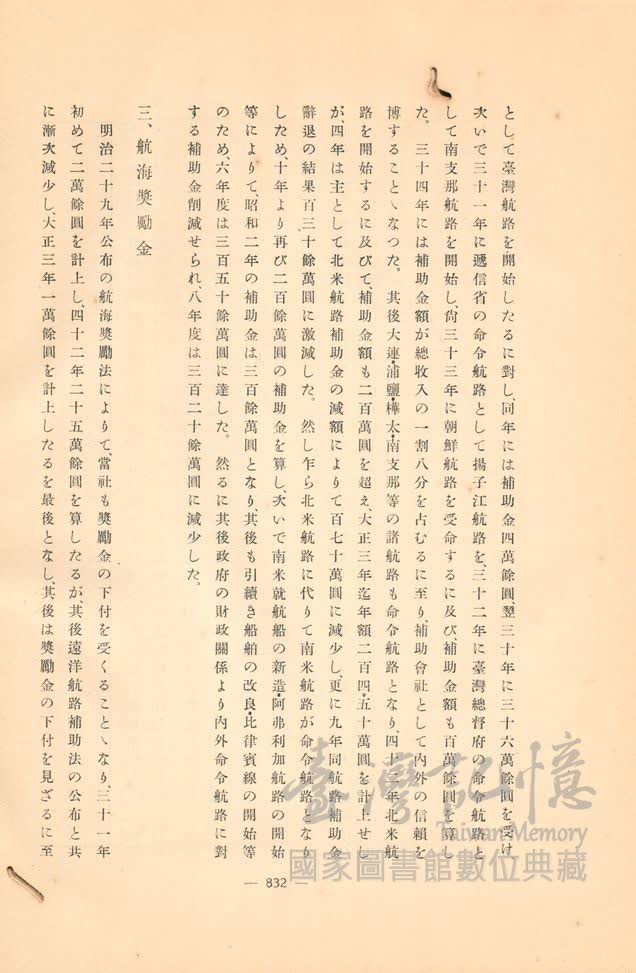 として臺灣航路を開始したるに對し、同年には補助金四萬餘圓翌三十年に三十六萬餘圓を受け
次いで三十一年に遞信省の命令航路として揚子江航路を、三十二年に臺灣總督府の命令航路と
して南支那航路を開始し、尙三十三年に朝鮮航路を受命するに及び、補助金額も百萬餘圓を算し
た。三十四年には補助金額が總收入の一割八分を占むるに至り、補助會社として内外の信賴を
博することゝなつた。其後大連・浦鹽・樺太・南支那等の諸航路も命令航路となり、四十二年北米航
路を開始するに及びて、補助金額も二百萬圓を超え、大正三年迄年額二百四・五十萬圓を計上せし
が、四年は主として北米航路補助金の減額によりて百七十萬圓に減少し、更に九年同航路補助金
辭退の結果百三十餘萬圓に激減した。然し乍ら北米航路に代りて南米航路が命令航路となり
しため、十年より再び二百餘萬圓の補助金を算し、次いで南米就航船の新造・阿弗利加航路の開始
等によりて、昭和二年の補助金は三百餘萬圓となり、其後も引續き船舶の改良・比律賓線の開始等
のため、六年度は三百五十餘萬圓に達した。然るに其後政府の財政關係より内外命令航路に對
する補助金削減せられ、八年度は三百二十餘萬圓に減少した。
三、航海獎勵金
明治二十九年公布の航海獎勵法によりて、當社も獎勵金の下付を受くることゝなり、三十一年
初めて二萬餘圓を計上し、四十二年二十五萬餘圓を算したるが、其後遠洋航路補助法の公布と共
に漸次減少し、大正三年一萬餘圓を計上したるを最後となし、其後は獎勵金の下付を見ざるに至
— 832 —
臺灣記憶
Taiwan Memory
國家圖書館數位典藏